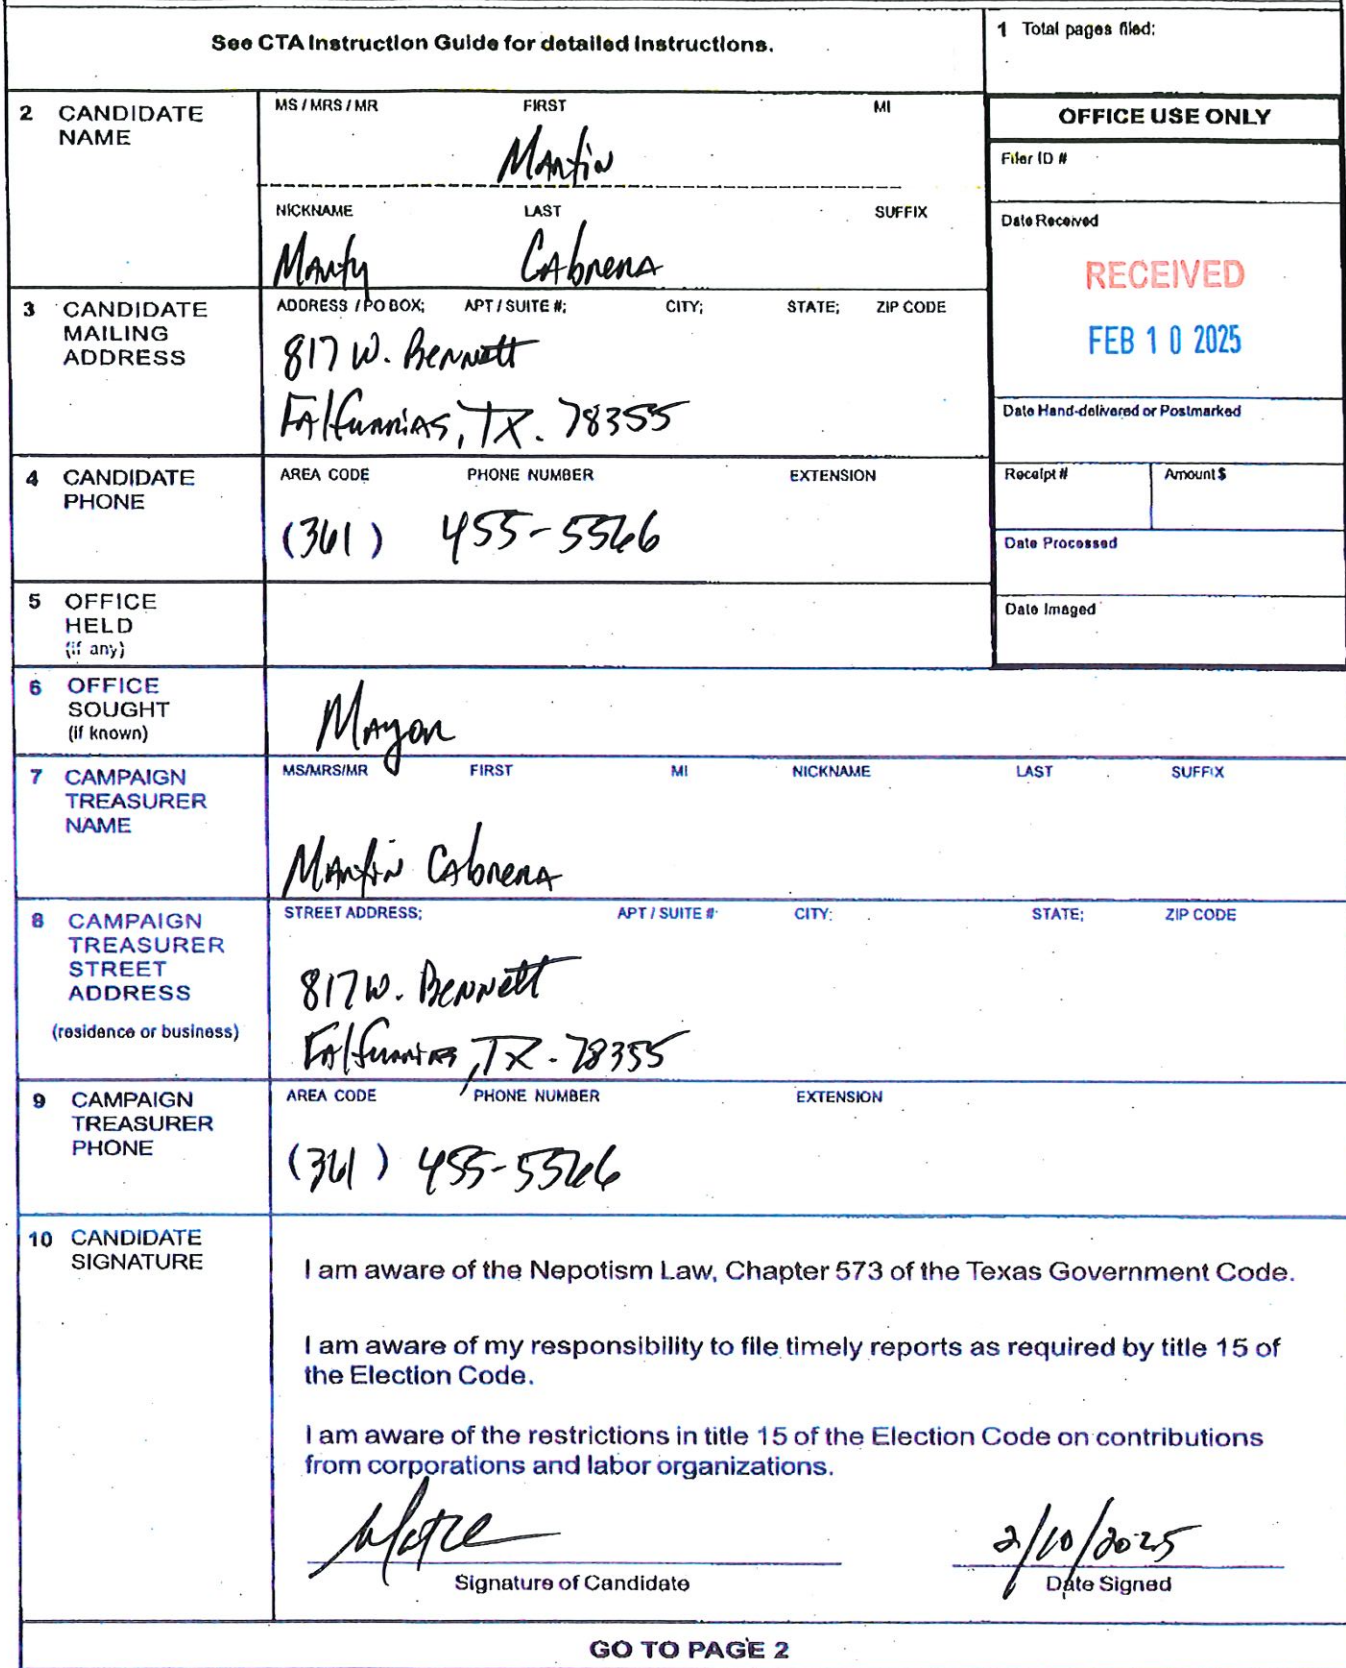 See CTA Instruction Guide for detailed instructions.
1 Total pages filed:
2 CANDIDATE NAME
MS / MRS / MR FIRST MI
Martin
NICKNAME LAST SUFFIX
Marty Cabrera
OFFICE USE ONLY
Filer ID #
Date Received
RECEIVED
FEB 10 2025
Date Hand-delivered or Postmarked
Receipt # Amount $
Date Processed
Date Imaged
3 CANDIDATE MAILING ADDRESS
ADDRESS / PO BOX; APT / SUITE #; CITY; STATE; ZIP CODE
817 W. Bennett
Falfurrias, TX. 78355
4 CANDIDATE PHONE
AREA CODE PHONE NUMBER EXTENSION
(361) 455-5566
5 OFFICE HELD (if any)
6 OFFICE SOUGHT (if known)
Mayor
7 CAMPAIGN TREASURER NAME
MS/MRS/MR FIRST MI NICKNAME LAST SUFFIX
Martin Cabrera
8 CAMPAIGN TREASURER STREET ADDRESS
(residence or business)
STREET ADDRESS; APT / SUITE #; CITY; STATE; ZIP CODE
817 W. Bennett
Falfurrias, TX. 78355
9 CAMPAIGN TREASURER PHONE
AREA CODE PHONE NUMBER EXTENSION
(361) 455-5566
10 CANDIDATE SIGNATURE
I am aware of the Nepotism Law, Chapter 573 of the Texas Government Code.
I am aware of my responsibility to file timely reports as required by title 15 of
the Election Code.
I am aware of the restrictions in title 15 of the Election Code on contributions
from corporations and labor organizations.
2/10/2025
Signature of Candidate Date Signed
GO TO PAGE 2